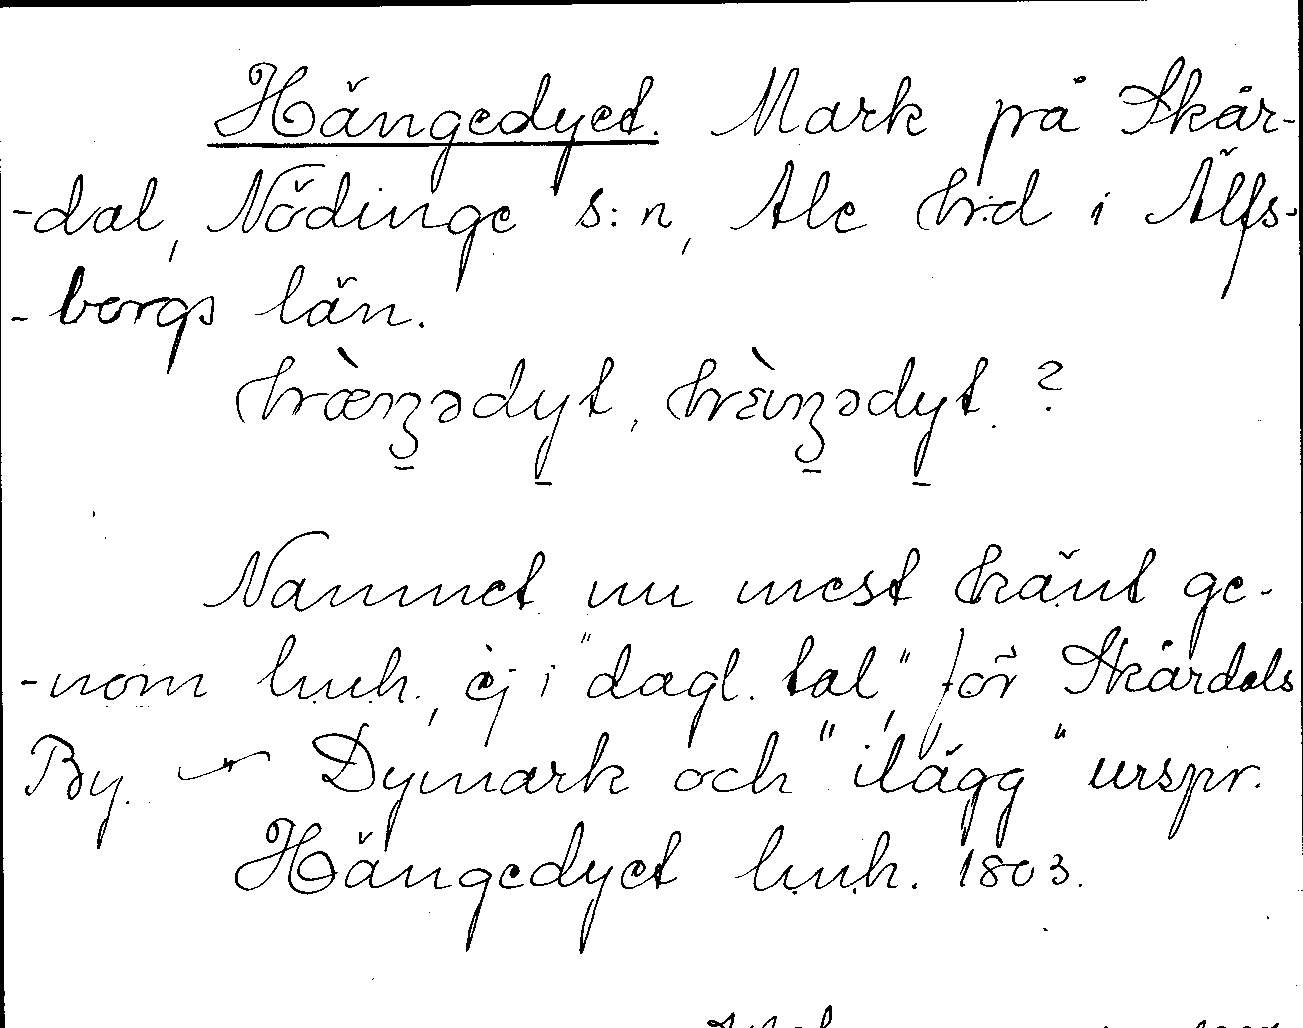 Hängedyet. Mark på Skår-
-dal, Nödinge s:n, Ale hrd i Älfs-
-borgs län.
hæŋədyt, hɛ̀ŋədyt. ?
Namnet nu mest känt ge-
-nom lmh., ej i "dagl. tal", för Skårdals
By. — Dymark och "ilägg" urspr.
Hängedyet lmh. 1803.